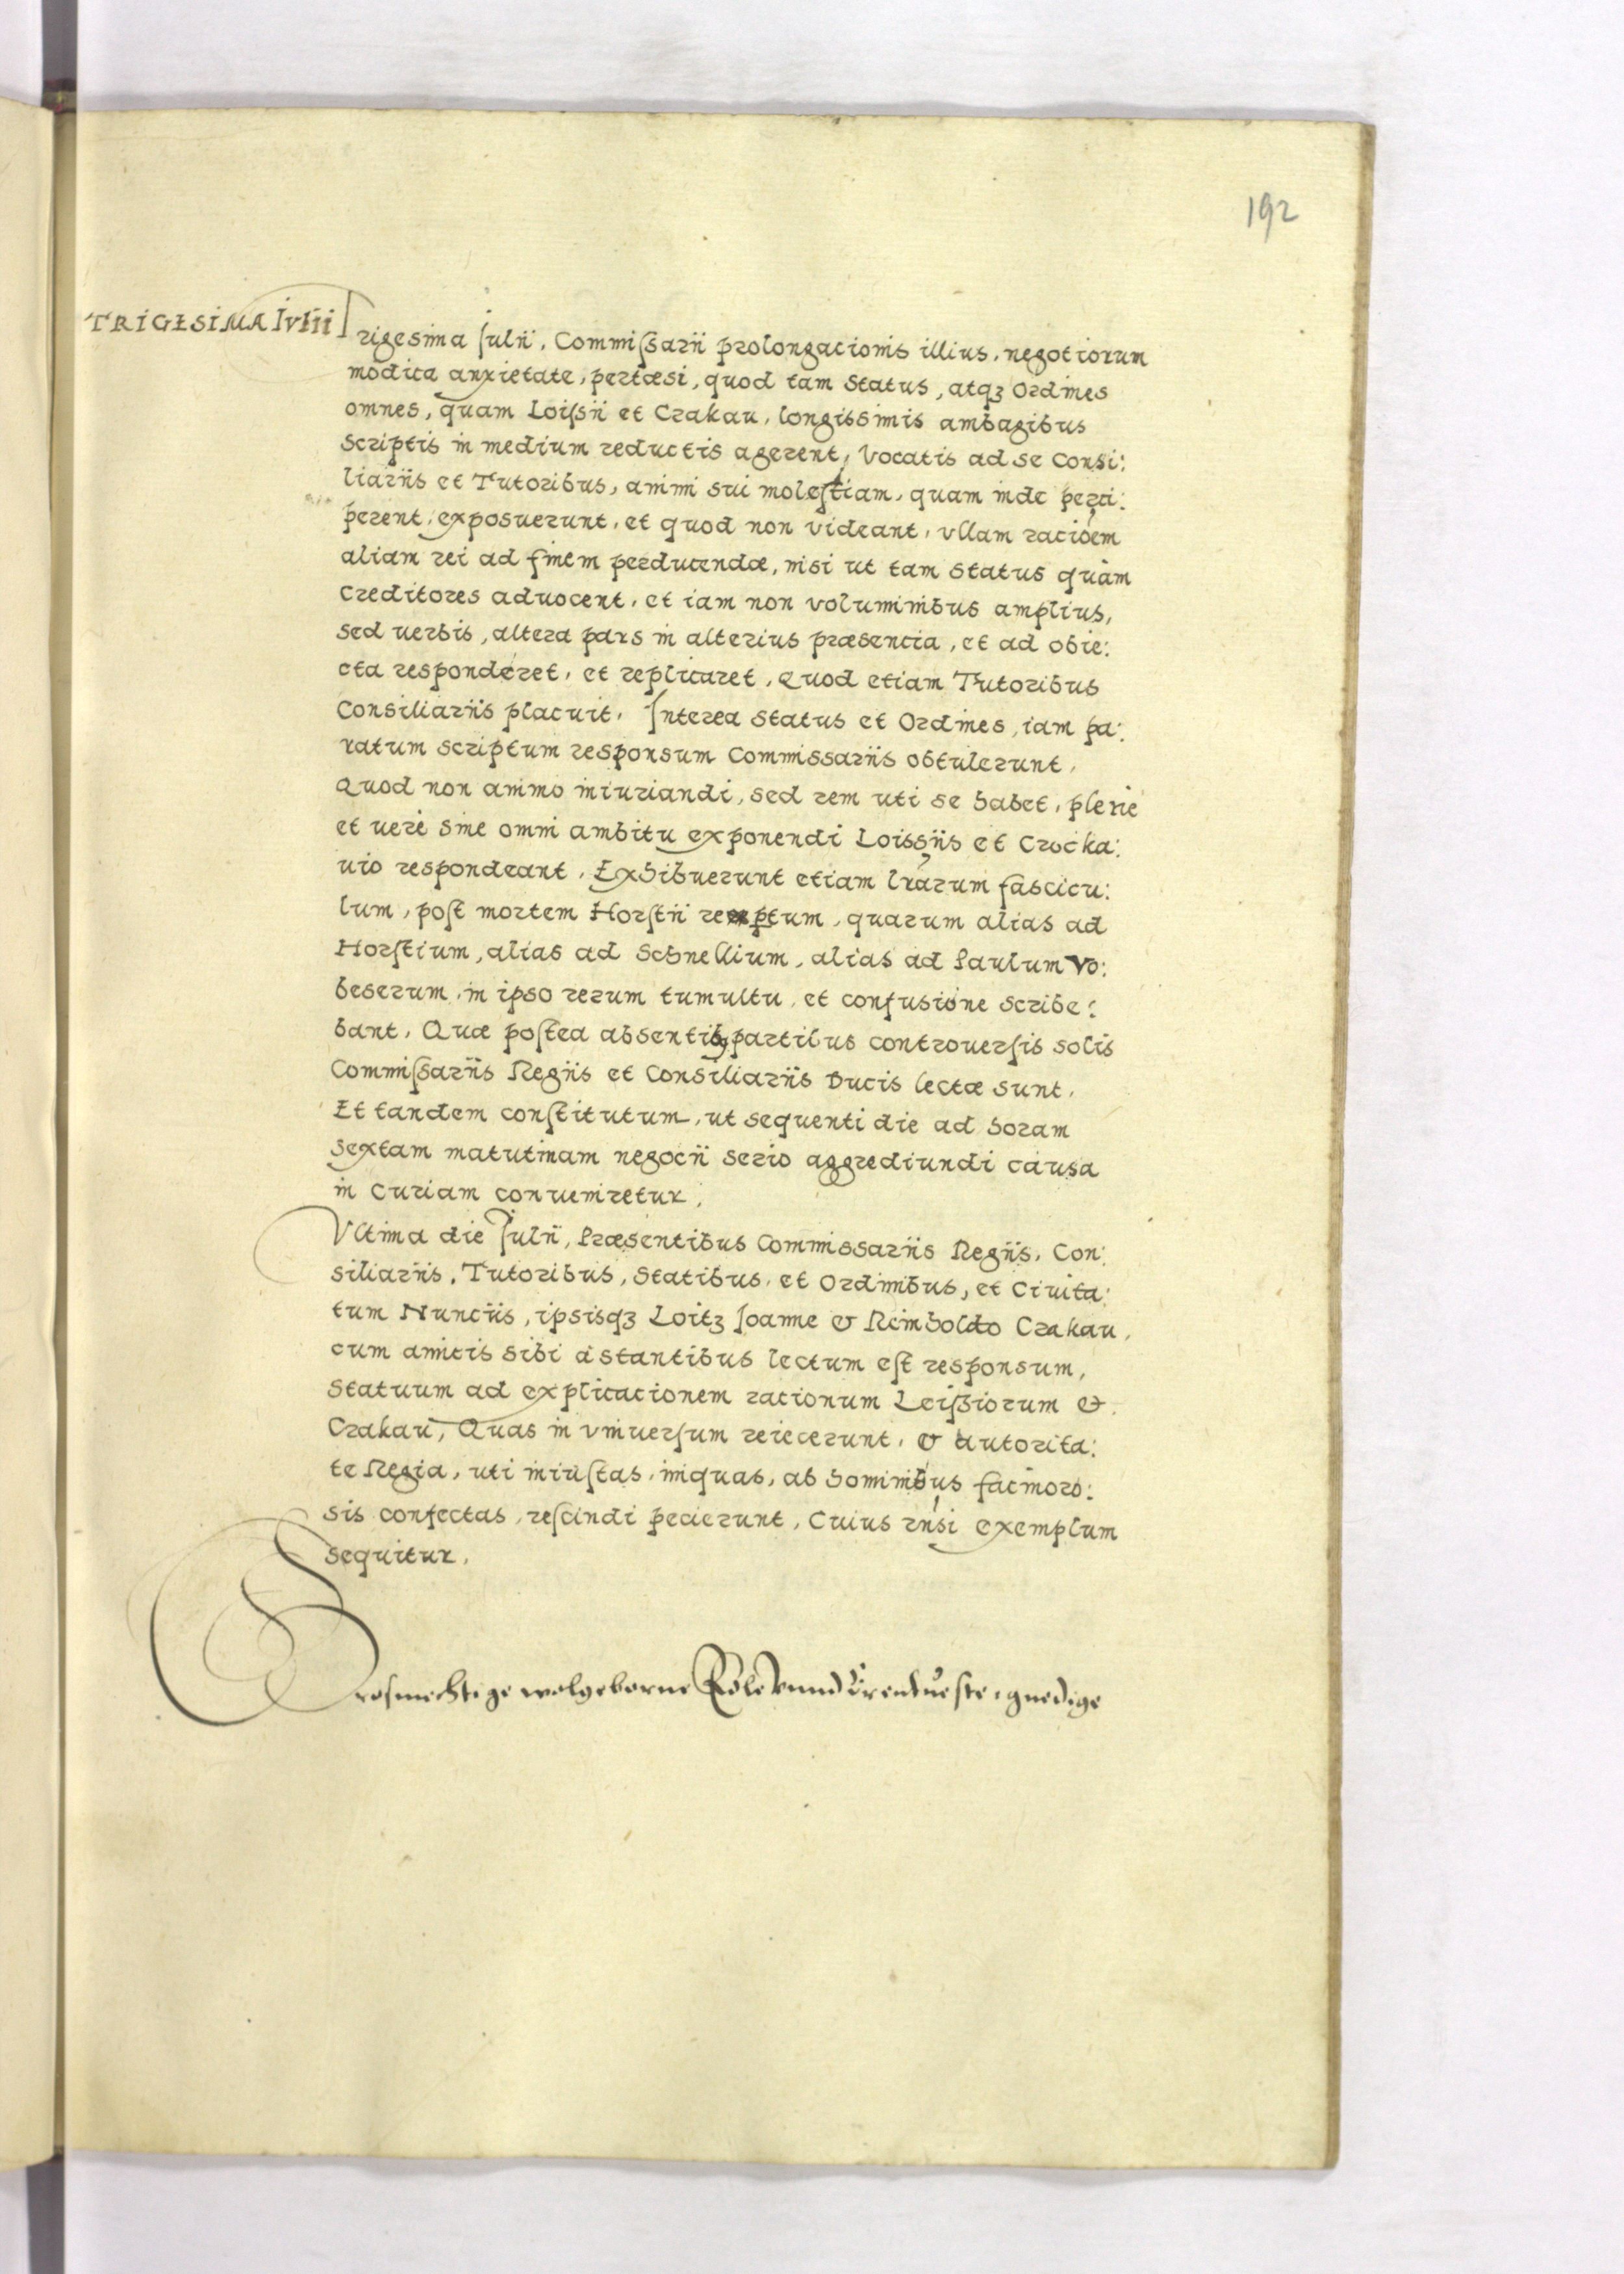 192
TRIGESIMA IVLII
Trigesima Julii, Commissarii prolongacionis illius, negotiorum
modica anxietate, pertæsi, quod tam Status, atqȝ Ordines
omnes, quam Loissii et Crakau, longissimis ambagibus
scriptis in medium reductis agerent, Vocatis ad se Consi:
liariis et Tutoribus, animi sui molestiam, quam inde perci:
perent, exposuerunt, et quod non videant, vllam racioēm
aliam rei ad finem perducendæ, nisi ut tam Status quàm
Creditores aduocent, et iam non voluminibus amplius,
sed uerbis, altera pars in alterius præsencia, et ad obie:
cta responderet, et replicaret, Quod etiam Tutoribus
Consiliariis placuit. Interea Status et Ordines, iam pa:
ratum scriptum responsum Commissariis obtulerunt,
Quod non animo iniuriandi, sed rem uti se habet, plene
et uerè sine omni ambitu exponendi Loissiis et Crocka:
uio respondeant. Exhibuerunt etiam lrarum fascicu:
lum, post mortem Horstii reptum, quarum alias ad
Horstium, alias ad Schnellium, alias ad Paulum Vo:
beserum, in ipso rerum tumultu, et confusione scribe:
bant. Quæ postea absentibȝ partibus controuersis solis
Commissariis Regiis et Consiliariis Ducis lectæ sunt.
Et tandem constitutum, ut sequenti die ad horam
sextam matutinam negocii serio aggrediundi causa
in Curiam conueniretur.
Vltima die Julii, Præsentibus Commissariis Regiis, Con:
siliariis, Tutoribus, Statibus, et Ordinibus, et Ciuita:
tum Nunciis, ipsisqȝ Loitz Joanne & Reinholdo Crakau,
cum amicis sibi astantibus lectum est responsum,
Statuum ad explicacionem racionum Leissiorum &
Crakau, Quas in vniuersum reiecerunt, & autorita:
te Regia, uti iniustas, iniquas, ab hominibus facinoro:
sis confectas, rescindi pecierunt, Cuius rnsi exemplum
sequitur.
Grosmechtige wolgeborne Edle vnnd Erentueste, gnedige